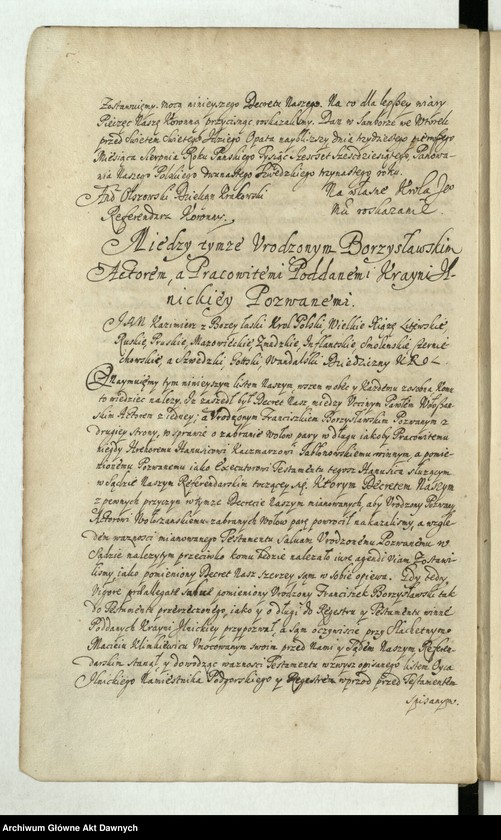 Zostawuiemy. mocą ninieyszego Decretu Naszego. Na co dla lepszey wiary
Pieczęć Naszę Koronną przycisnąć roskazalismy. Dan w Samborze we Wtorek
przed Swiętem Swiętego Idziego Opata naybliższy dnia trzydziestego pierwszego
Miesiąca Sierpnia Roku Pańskiego Tysiąc Szescset Szescdziesiątego Panowa-
nia Naszego Polskiego dwunastego Szwedzkiego trzynastego roku.
And Olszowski Dziekan Krakowski Na własne Krola Je°
Referendarz Koronny. Mci roskazanie.
Między tymze Vrodzonym Borzysławskim
Actorem, a Pracowitemi Poddanemi Krayny Il-
nickiey Pozwanemi.
JAN Kazimierz z Bożey łaski Krol Polski, Wielkie Xiążę Litewskie,
Ruskie, Pruskie, Mazowieckie, Zmudzkie Inflantskie, Smolenskie, Czernie-
chowskie, a Szwedzki, Gottski, Wandalski Dziedziczny KROL.
Oznaymuiemy tym ninieyszym listem Naszym, wszem wobec y kazdemu zosobna komu
to wiedziec nalezy. Iz zaszedł był Decret Nasz między Vrodzonym Pawłem Wołoszań-
skim Actorem z iedney, a Vrodzonym Franciszkiem Borzysławskim Pozwanym z
drugiey strony, w sprawie o zabranie wołow pary w długu iakoby Pracowitemu
niegdy Hanusowi Kaczmarzowi Jabłonowskiemu winnym, a pomie-
nionemu Pozwanemu iako Executorowi Testamentu tegosz Hanusa słuzącym
w Sądzie Naszym Referendarskim toczącey się. Ktorym Decretem Naszym
z pewnych przyczyn w tymze Decrecie Naszym mianowanych, aby Vrodzony Pozwany
Actorowi Wołoszanskiemu zabranych wołow parę powrocił nakazalismy, a wzglę-
dem wazności mianowanego Testamentu Saluam Vrodzonemu Pozwanemu w
Sądzie nalezytym przeciwko komu będzie nalezało iure agendi viam Zostawi-
lismy, iako pomieniony Decret Nasz szerzey sam w sobie opiewa. Gdy tedy
Vigore pomieniony Vrodzony Franciszek Borzysławski tak
do Testamentu przerzeczonego, iako y o długi do Regestru y Testamentu winne
Poddanych Krainy Ilnickiey przypozwał, a sam oczywiście przy Slachetnym
Macieiu Klimkiewicu Vmocowanym swoim przed Nami y Sądem Naszym Referen-
darskim stanął, y dowodząc wazności Testamentu zwysz opisanego listem Oyca
Ilnickiego Namiestnika Podgorskiego y Regestrem wprzod przed Testamentem
spisanym.
Archiwum Główne Akt Dawnych